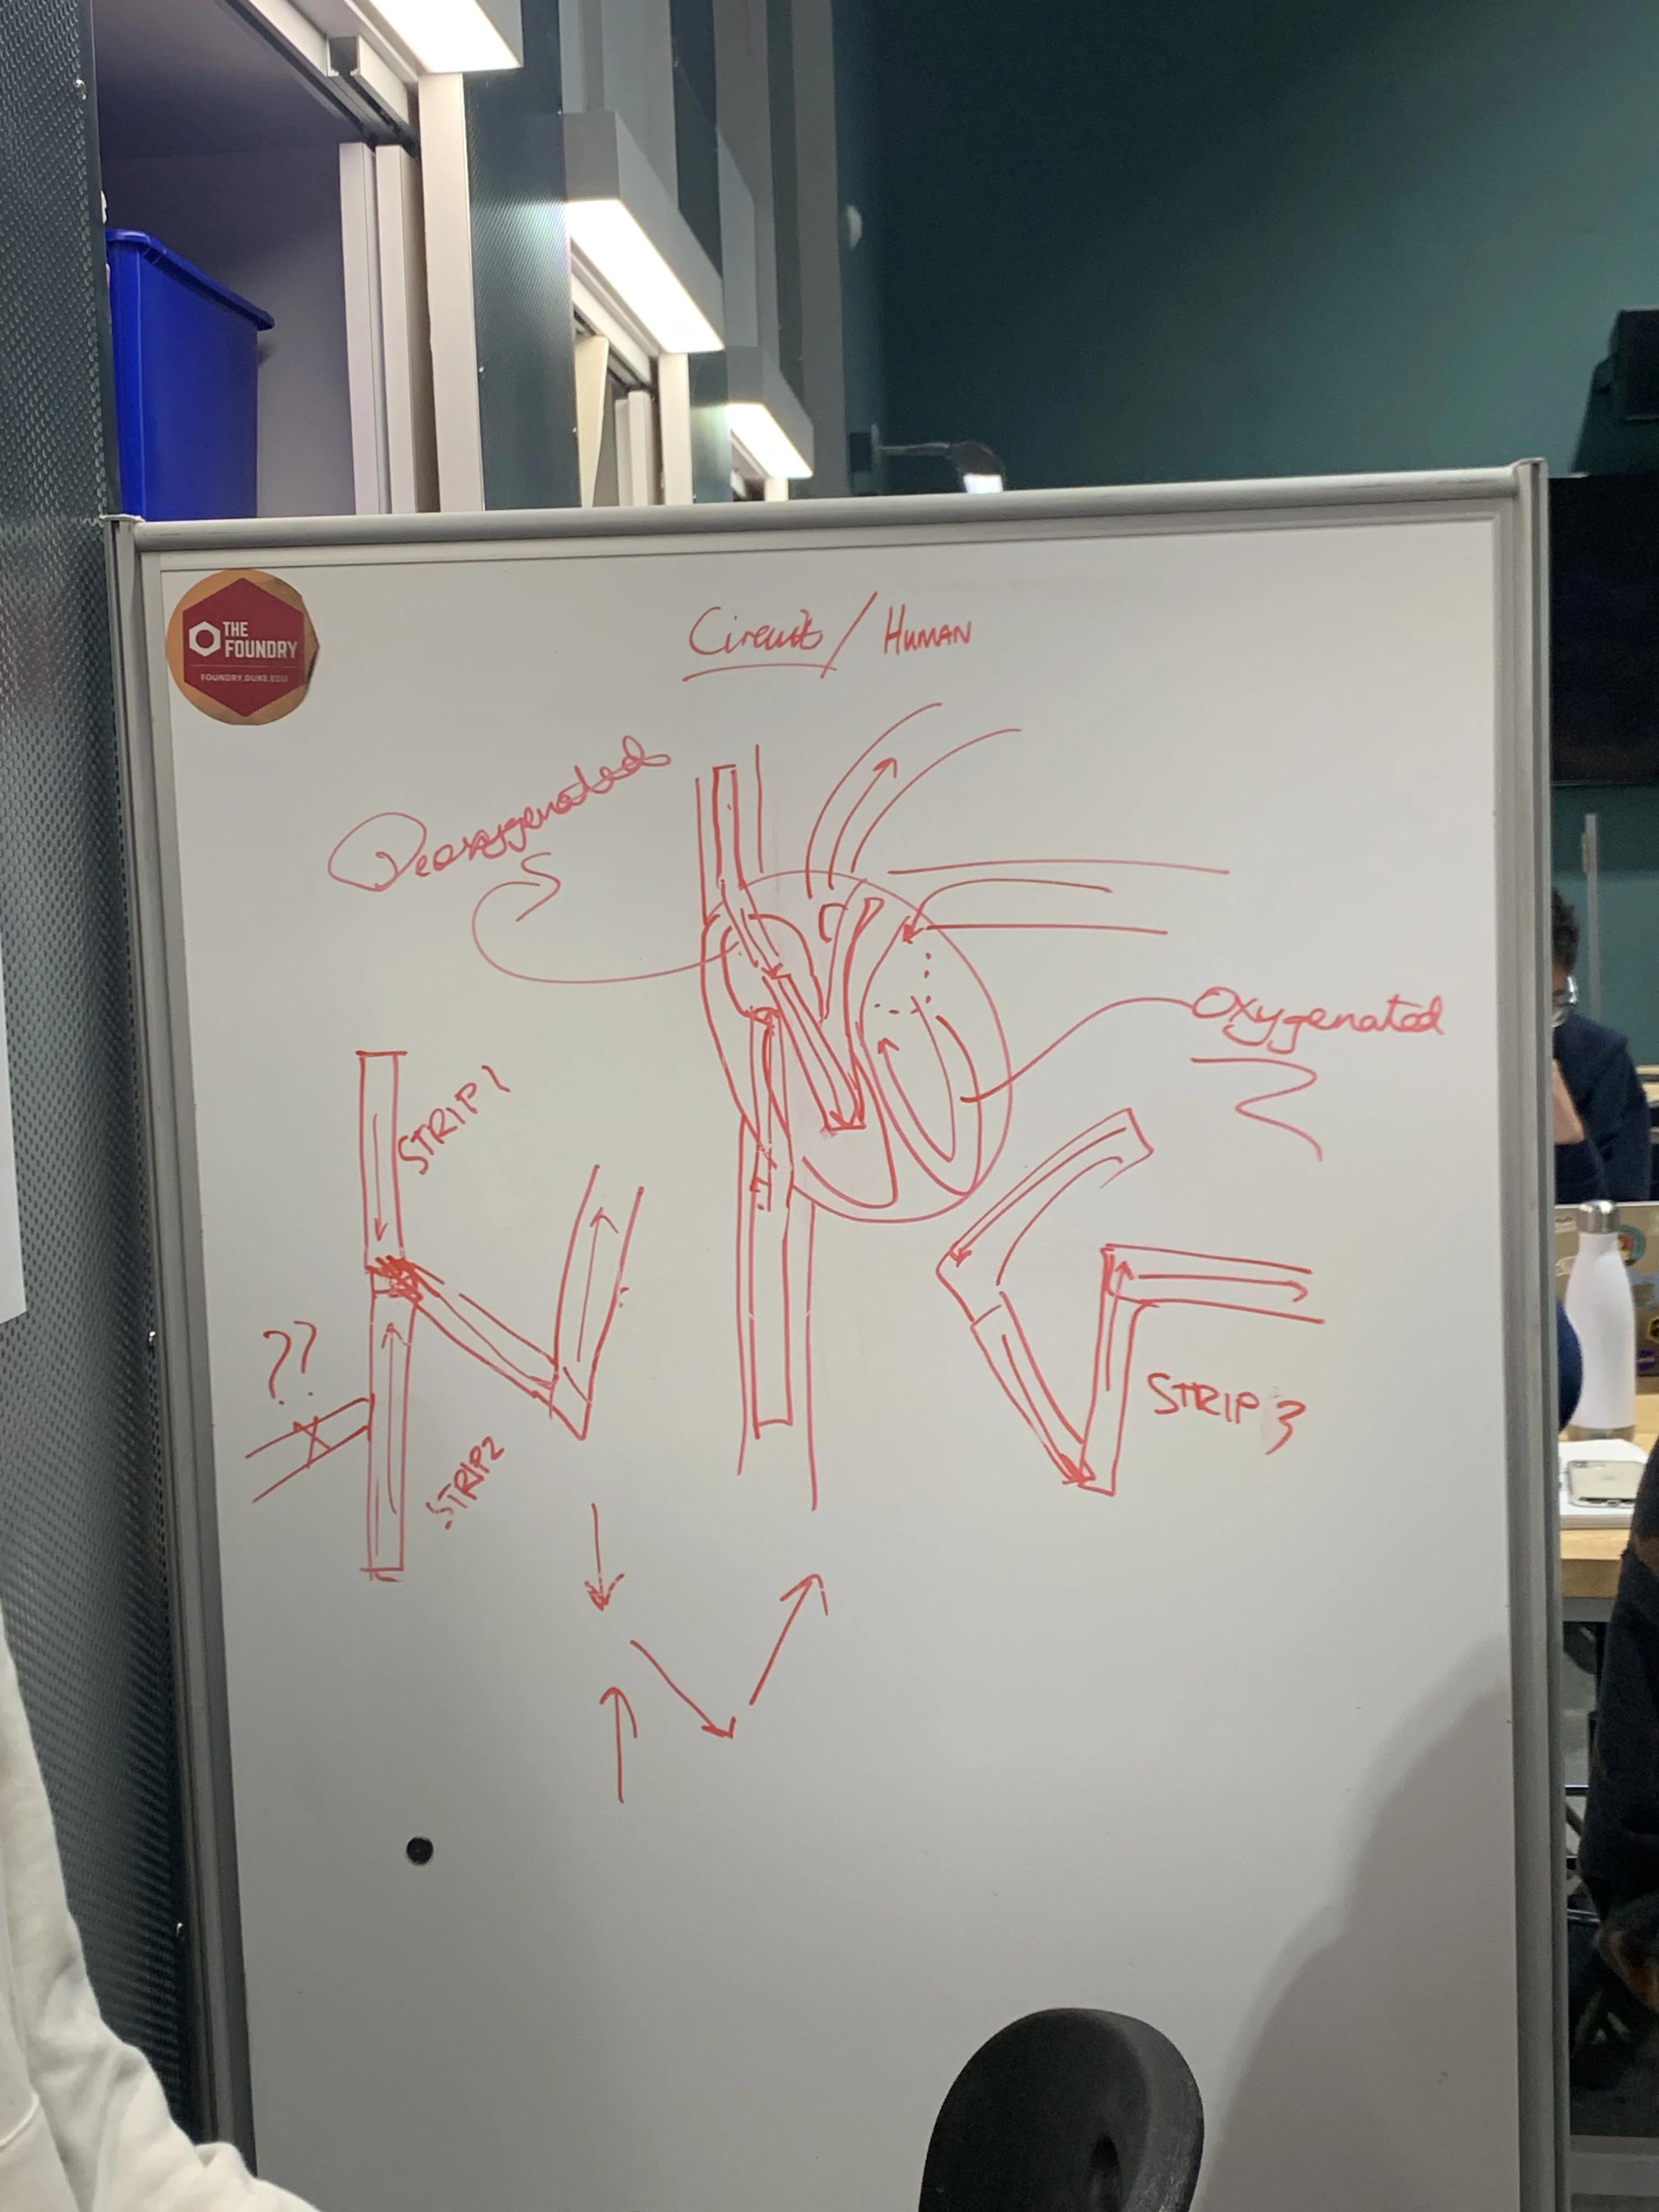 THE
FOUNDRY
FOUNDRY.DUKE.EDU
Circuit / HUMAN
Deoxygenated
Oxygenated
STRIP 1
??
STRIP 3
STRIP2